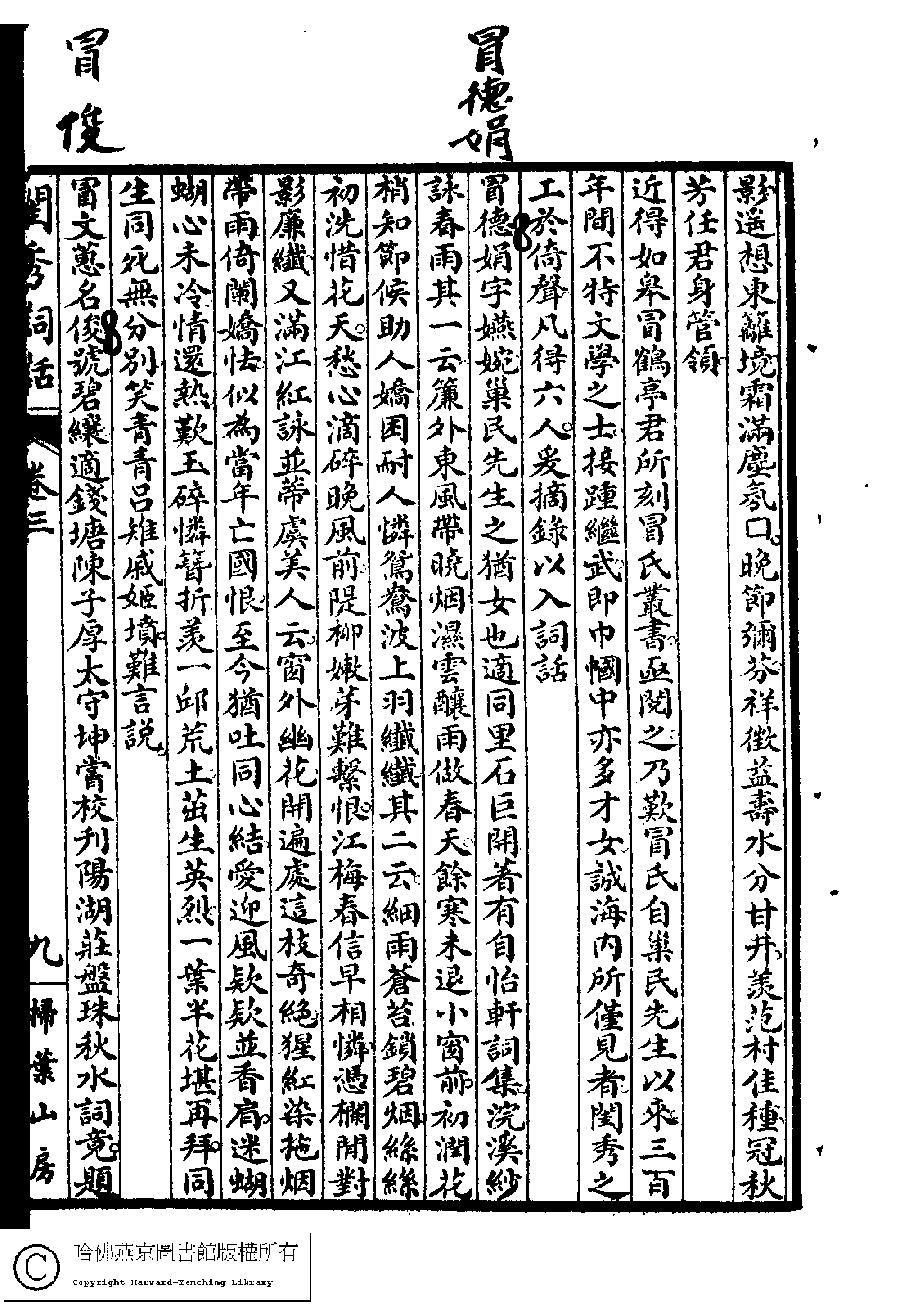 冒德娟
冒俊
影遥想東籬境霜滿塵氛口晚節彌芬祥徵益壽水分甘井羨范村佳種冠秋
芳任君身管領
近得如皋冒鶴亭君所刻冒氏叢書亟閱之乃歎冒氏自巢民先生以來三百
年間不特文學之士接踵繼武即巾幗中亦多才女誠海內所僅見者閨秀之
工於倚聲凡得六人爰摘錄以入詞話
冒德娟字嬿婉巢民先生之猶女也適同里石巨開著有自怡軒詞集浣溪紗
詠春雨其一云簾外東風帶曉烟濕雲釀雨做春天餘寒未退小窗前初潤花
梢知節候助人嬌困耐人憐鴛鴦波上羽纖纖其二云細雨蒼苔鎖碧烟絲絲
初洗惜花天愁心滴碎晚風前隄柳嫩芽難繫恨江梅春信早相憐憑欄閒對
影廉纖又滿江紅詠並蒂虞美人云窗外幽花開遍處這枝奇絕猩紅染拖烟
帶雨倚闌嬌怯似為當年亡國恨至今猶吐同心結愛迎風欵欵並香肩迷蝴
蝴心未冷情還熱歎玉碎憐簪折羨一邱荒土茁生英烈一葉半花堪再拜同
生同死無分別笑青青呂雉戚姬墳難言說
冒文蕙名俊號碧纕適錢塘陳子厚太守坤嘗校刋陽湖莊盤珠秋水詞竟題
閨秀詞話
卷三
九
掃葉山房
哈佛燕京圖書館版權所有
Copyright Harvard-Yenching Library